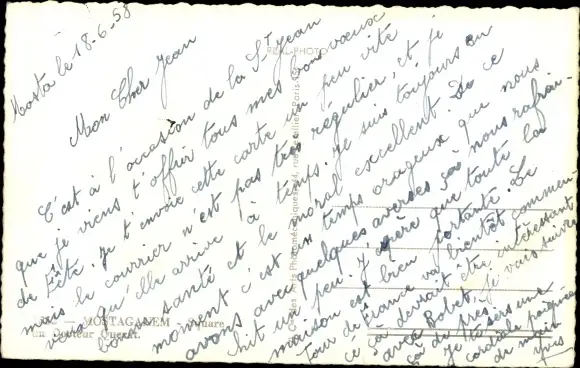 Mosta le 18-6-58
Mon Cher Jean
C'est à l'occasion de la St Jean
que je viens t'offrir tous mes bons voeux
de Fête. Je t'envoie cette carte un peu vite
mais le courrier n'est pas très régulier, et je
veux qu'elle arrive à temps. Je suis toujours en
bonne santé et le moral excellent. De ce
moment c'est un temps orageux que nous
avons avec quelques averses, ça nous rafraî-
chit un peu. J'espère que toute la
maison est bien portante. Le
Tour de France va bientôt commen-
cé ça devrait être intéressant
avec Bobet, je vais suivre
ça de près.
Je te serre une
cordiale poignée
de main
Yves
REAL-PHOTO
MOSTAGANEM - Square
du Docteur